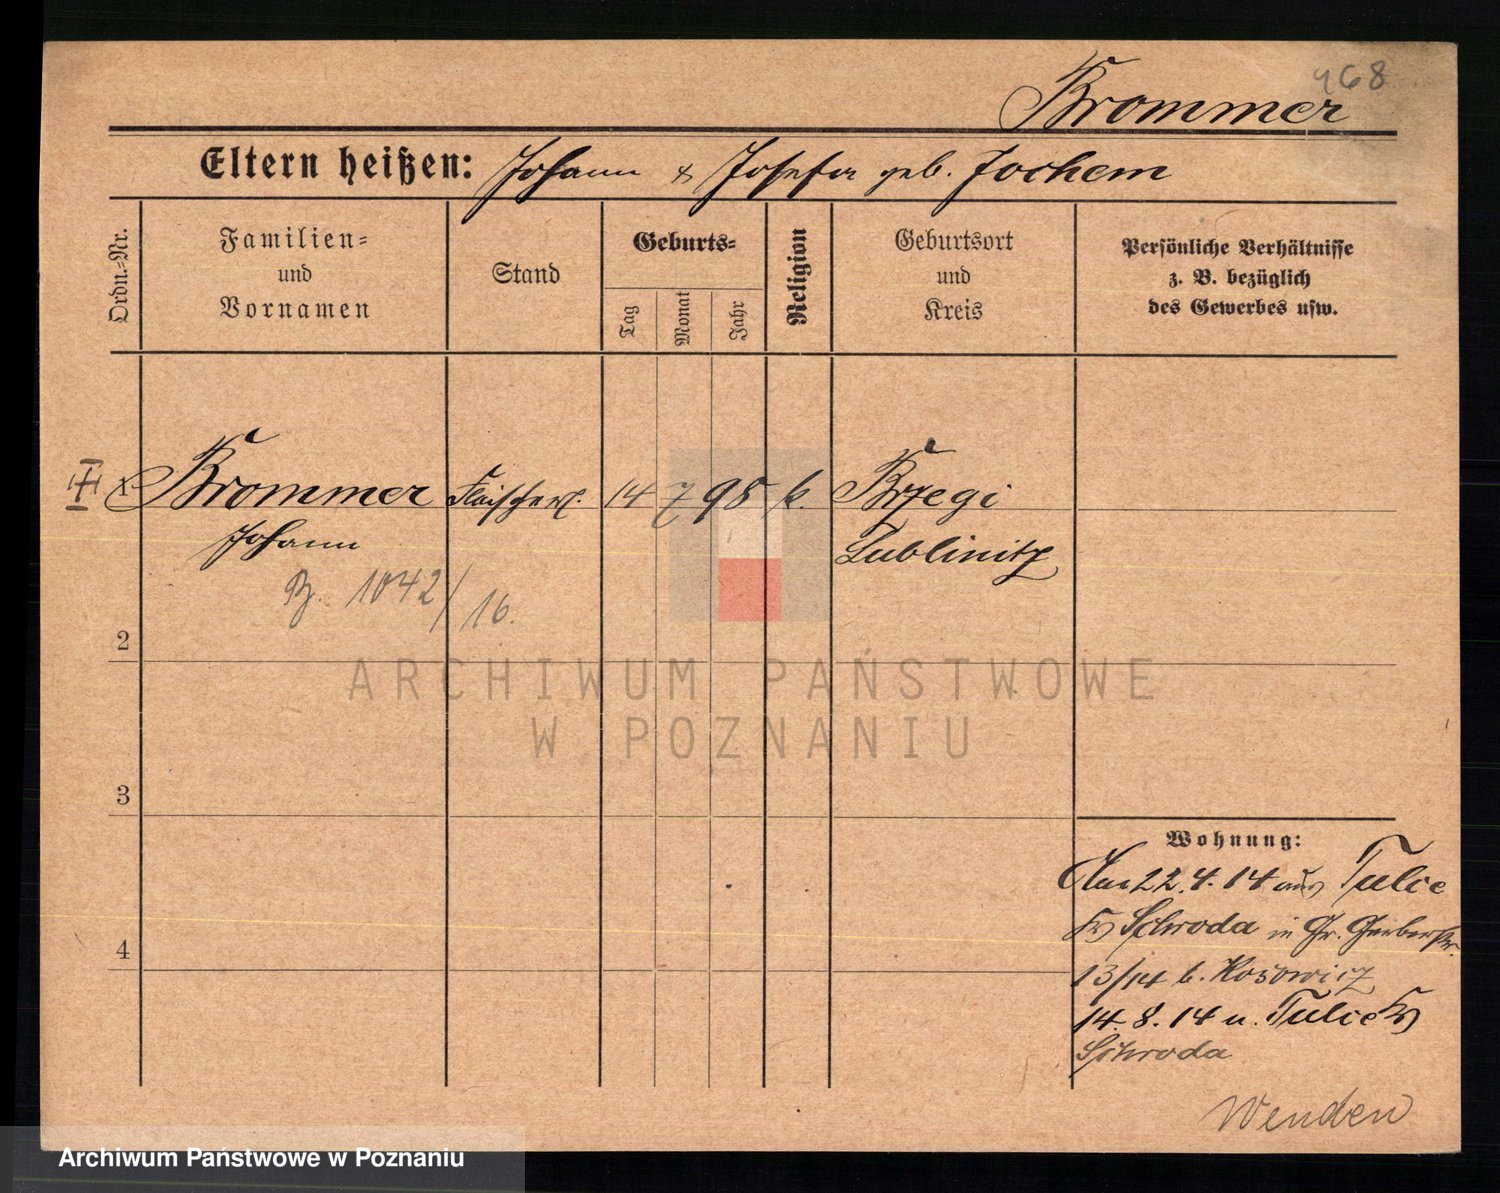 468
Brommer
Eltern heißen: Johann & Josefa geb. Jochem
Ordn.-Nr.
Familien-
und
Vornamen
Stand
Geburts-
Tag
Monat
Jahr
Religion
Geburtsort
und
Kreis
Persönliche Verhältnisse
z. B. bezüglich
des Gewerbes usw.
1 Brommer Fleischerl. 14 7 95 k. Brzegi
Johann Lublinitz
B. 1042/16.
2
ARCHIWUM PAŃSTWOWE
W POZNANIU
3
4
Wohnung:
22.4.14 aus Tulce
Kr Schroda in Gr. Gerberstr.
13/14 b. Kosowicz
14.8.14 n. Tulce Kr
Schroda
Wenden
Archiwum Państwowe w Poznaniu